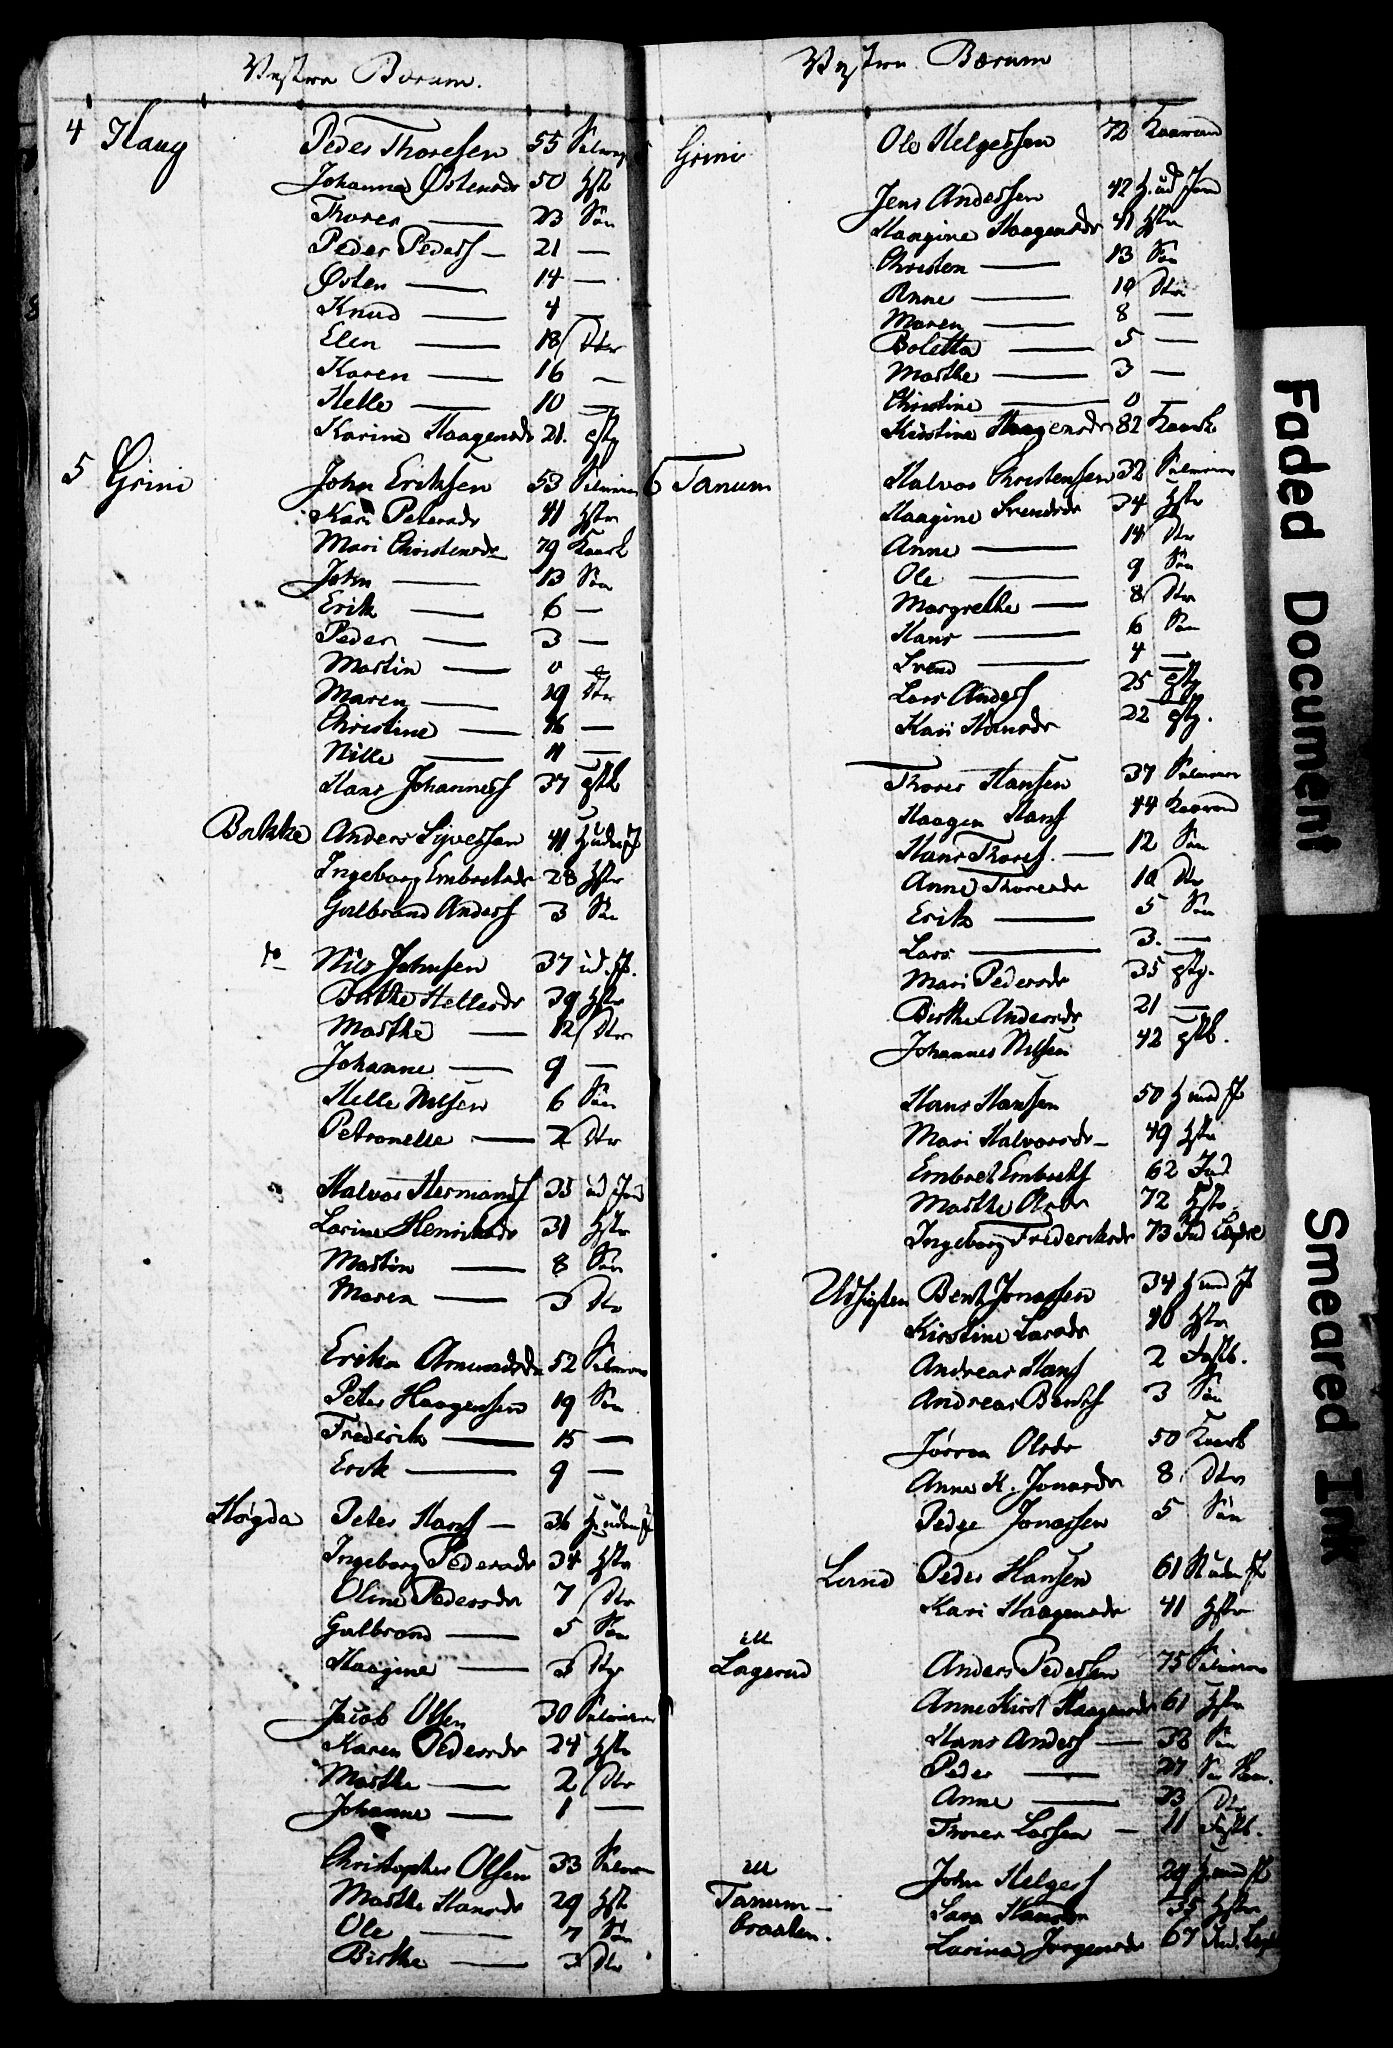 Vestre Bærum.
4 Haug Peder Thoresen 55 Selveier
Johanna Østensdr 50 Hstr
Thores — 23 Søn
Peder Pederss — 21 —
Østen — 14 —
Knud — 4 —
Elen — 18 Dtr
Karen — 16 —
Helle — 10 —
Karine Haagensdr 21. pstg
5 Grini John Eriksen 53 Selveier
Kari Petersdr 41 Hstr
Mari Christensdr 79 Kaark
John — 13 Søn
Erik — 6 —
Peder — 3 —
Martin — 0 —
Maren — 19 Dtr
Christine — 16 —
Nille — 11 —
Hans Johanness 37 pstk
Bakke Anders Syvessen 41
Ingeborg Embretsdr 28 Hstr
Gulbrand Anderss 3 Søn
do Nils Johnsen 37 id. Jd.
Birthe Hellesdr 39 Hstr
Marthe — 12 Dtr
Johanne — 9 —
Helle Nilsen 6 Søn
Petronelle — 2 Dtr
Halvor Hermanss 35 id Jord
Larine Henriksdr 31 Hstr
Martin — 8 Søn
Maren — 3 Dtr
Erika Amundsdr 52 Selveier
Peter Haagensen 19 Søn
Frederik — 15 —
Erik — 9 —
Høgda Peter Hanss — 36
Ingeborg Pedersdr 34 Hstr
Oline Pedersdr 7 Dtr
Gulbrand — 5 Søn
Haagine — 3 Dtr
Jacob Olsen 30 Selveier
Karen Pedersdr 24 Hstr
Marthe — 2 Dtr
Johanne — 1 —
Christopher Olsen 33 Selveier
Marthe Hansdr 29 Hstr
Ole — 7 Søn
Birthe — 3 Dtr
Vestre Bærum
Grini Ole Helgessen 72 Kaarmand
Jens Anderssen 42 H. ud Jord
Haagine Haagensdr 41 Hstr
Christen — 13 Søn
Anne — 10 Dtr
Maren — 8 —
Boletta — 5 —
Marthe — 3 —
Christine — 0 —
Kirstine Haagensdr 82 Kaark
6 Tanum Halvor Christensen 32 Selveier
Haagine Svendsdr 34 Hstr
Anne — 14 Dtr
Ole — 9 Søn
Margrethe — 8 Dtr
Hans — 6 Søn
Svend — 4 —
Lars Anderss 25 pstg
Kari Hansdr 22 pstg.
Thores Hansen 37 Selveier
Haagen Hanss 44 Kaarmd
Hans Thoress. — 12 Søn
Anne Thoresdr 10 Dtr
Erik — 5 Søn
Lars — 3. —
Mari Pedersdr 35 pstg.
Birthe Andersdr 21 —
Johannes Nilsen 42 pstk.
Hans Hansen 50 H med Jd
Mari Halvorsdr — 49 Hstr
Embret Embretss 62 Ind
Marthe Olsdr 72 Hstr
Ingeborg Frederiksdr 73 Ind
Udsigten Bent Jonassen 34 H med Jd
Kirstine Larsdr 40 Hstr
Andreas Hanss 2 Fostb.
Andreas Bentss 3 Søn
Jørran Olsdr 50 Kaark
Anne K. Jonasdr 8 Dtr
Peder Jonassen 5 Søn
Peder Hansen 61
Kari Haagensdr 41 Hstr
Lagerud Anders Pederssen 75 Selveier
Anne Kirst Haagensdr 61 Hstr
Hans Anderss — 38 Søn
Peder — 27 Søn
Anne — 23 Dtr
Thorer Larsen — 11 Fostb.
Tanum-
braaten. John Helgess 29 H med Jd
Sara Hansdr 35 Hstr
Larine Jørgensdr 67 Ind.
Faded Document
Smeared Ink